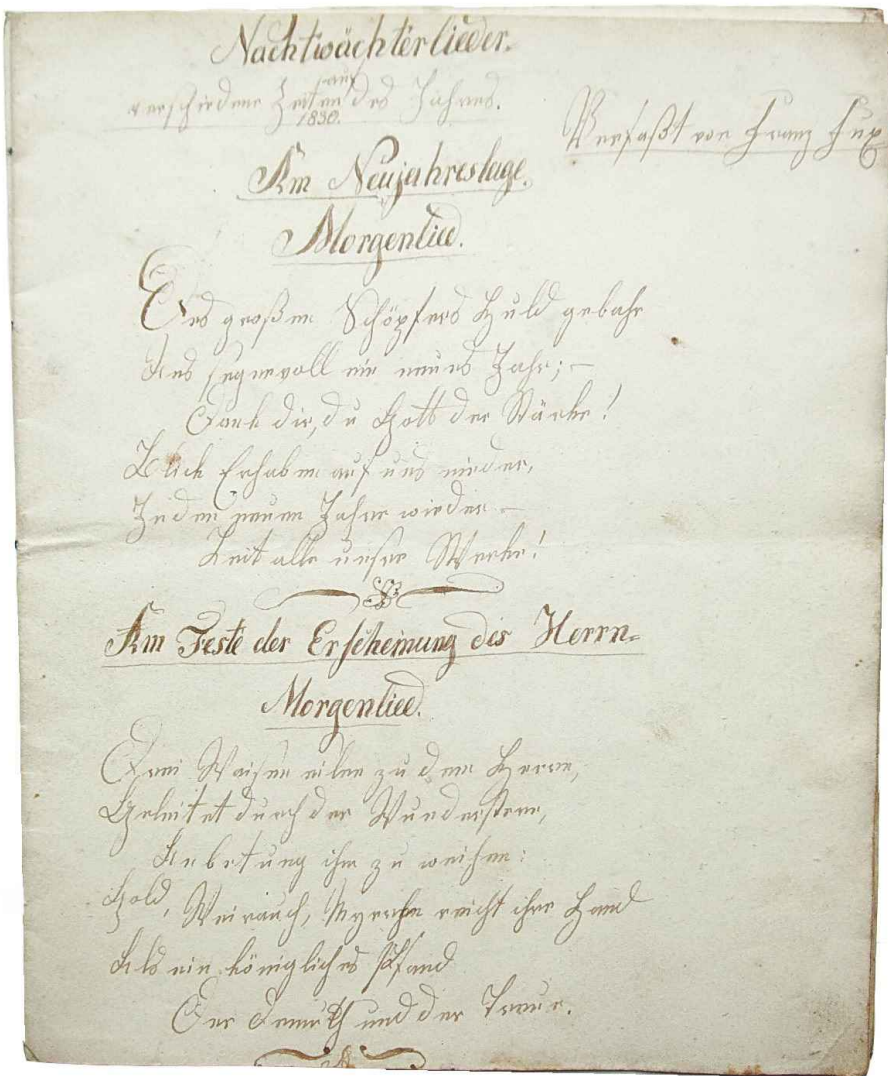 Nachtwächterlieder.
auf
verschiedene Zeiten des Jahres.
1830.
Verfaßt von Franz Fux
Am Neujahrestage.
Morgenlied.
Des großen Schöpfers Huld gebahr
Uns segnevoll ein neues Jahr; –
Dank dir, du Gott der Stärke!
Blick Erhaben auf uns nieder,
In dem neuen Jahre wieder –
Leit alle unsere Werke!
Am Feste der Erscheinung des Herrn
Morgenlied.
Drei Waisen eilen zu dem Herrn,
Geleitet durch der Wunderstern,
Anbetung ihm zu weihen:
Gold, Weirauch, Myrrhe reicht ihre Hand
Als ein königliches Pfand
Der Demuth und der Treue.